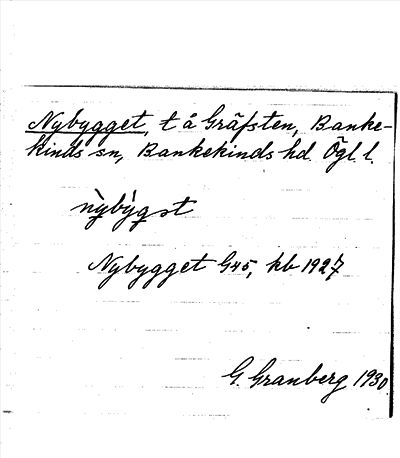 Nybygget, t å Gräfsten, Banke-
kinds sn, Bankekinds hd. Ögl. l.
Nybygget G45, kb 1927
G. Granberg 1930.